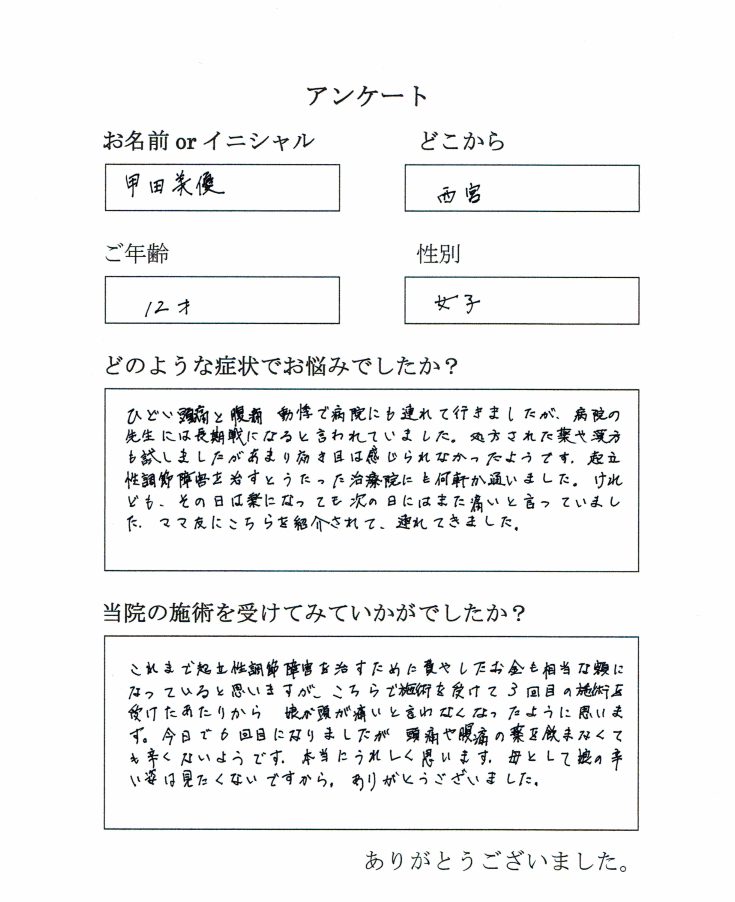 アンケート
お名前 or イニシャル
どこから
甲田美優
西宮
ご年齢
性別
12才
女子
どのような症状でお悩みでしたか？
ひどい頭痛と腹痛 動悸で病院にも連れて行きましたが、病院の
先生には長期戦になると言われていました。処方された薬や漢方
も試しましたがあまり効き目は感じられなかったようです。起立
性調節障害を治すとうたった治療院にも何軒か通いました。けれ
ども、その日は楽になっても次の日にはまた痛いと言っていまし
た。ママ友にこちらを紹介されて、連れてきました。
当院の施術を受けてみていかがでしたか？
これまで起立性調節障害を治すために費やしたお金も相当な額に
なっていると思いますが、こちらで施術を受けて3回目の施術を
受けたあたりから 娘が頭が痛いと言わなくなったように思いま
す。今日でも6回目になりましたが 頭痛や腹痛の薬を飲まなくて
も辛くないようです。本当にうれしく思います。母として娘の辛
い姿は見たくないですから。ありがとうございました。
ありがとうございました。